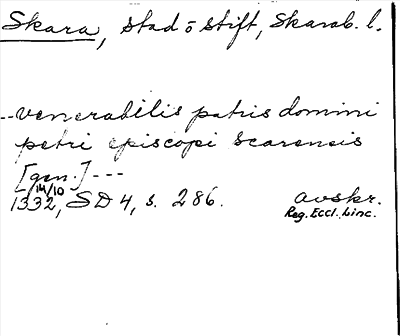 Skara, stad o stift, Skarab. l.
--venerabilis patris domini
petri episcopi scarensis
[gen.] ---
14/10
1332, SD 4, s. 286. avskr.
Reg. Eccl. Linc.